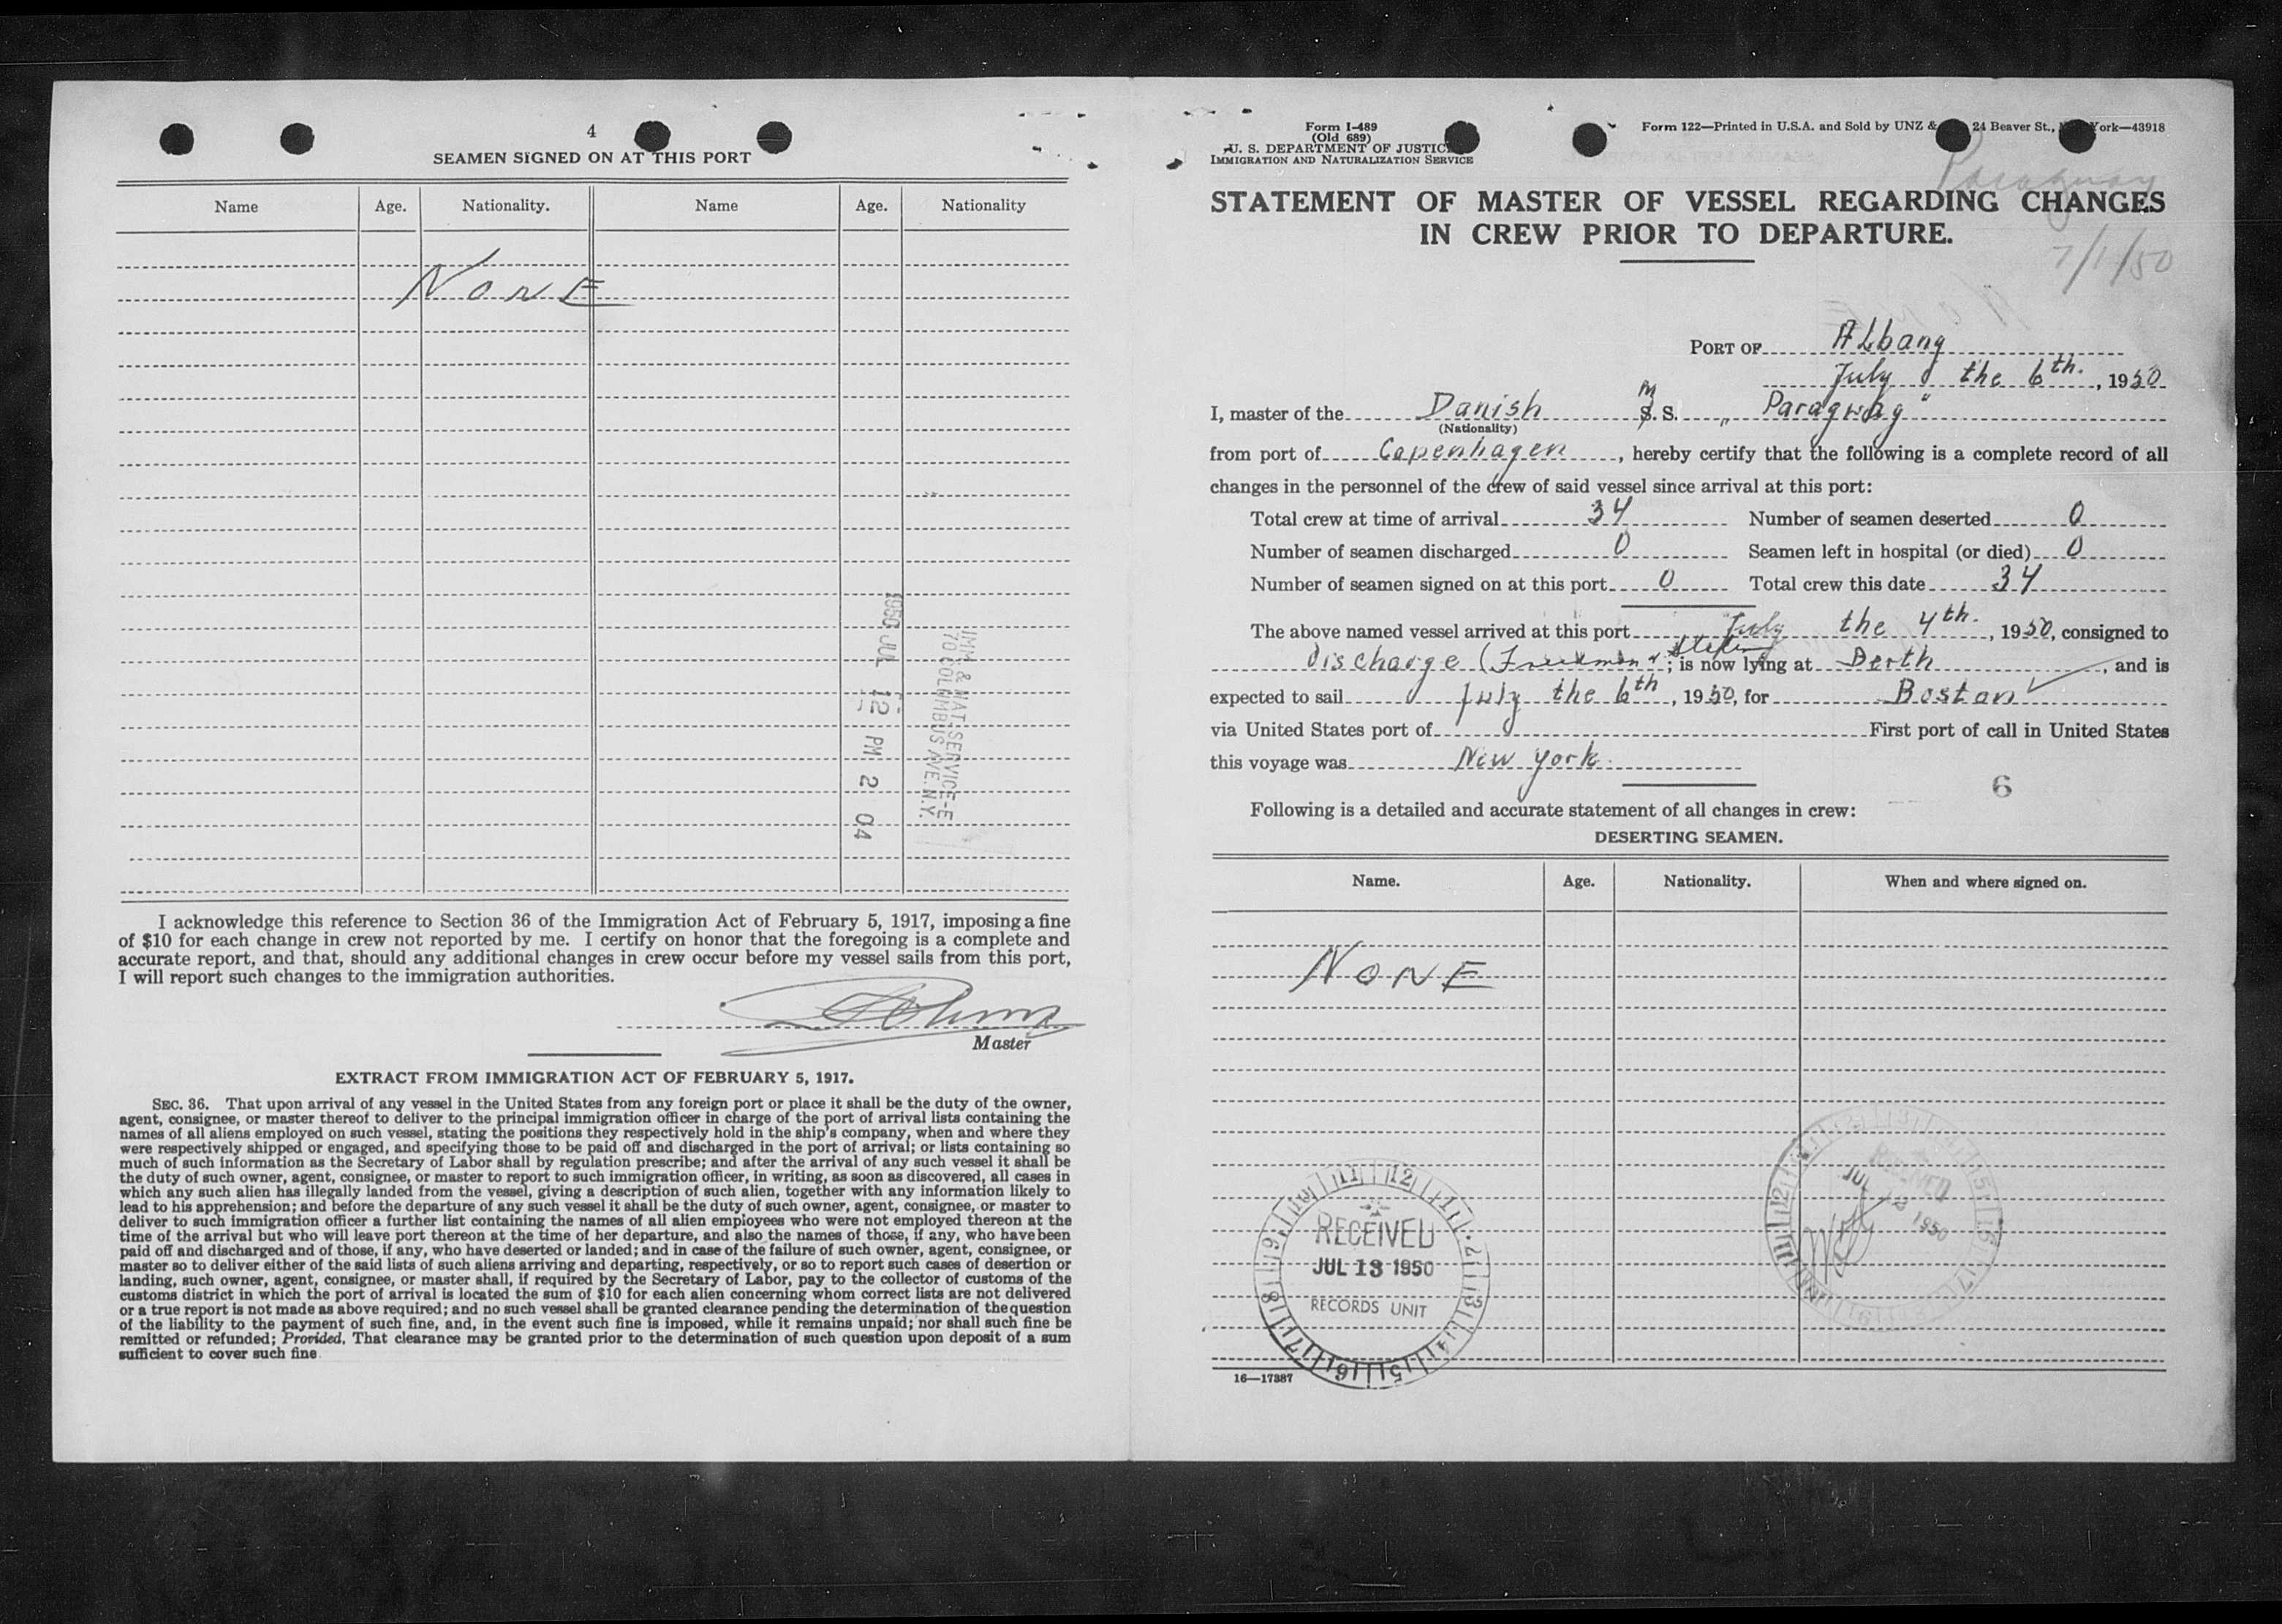 4
SEAMEN SIGNED ON AT THIS PORT
Name Age. Nationality. Name Age. Nationality
NONE
1950 JUL 12 PM 2 04
IMM & NAT SERVICE-E
70 COLUMBUS AVE. N.Y.
I acknowledge this reference to Section 36 of the Immigration Act of February 5, 1917, imposing a fine
of $10 for each change in crew not reported by me. I certify on honor that the foregoing is a complete and
accurate report, and that, should any additional changes in crew occur before my vessel sails from this port,
I will report such changes to the immigration authorities.
Master
EXTRACT FROM IMMIGRATION ACT OF FEBRUARY 5, 1917.
SEC. 36. That upon arrival of any vessel in the United States from any foreign port or place it shall be the duty of the owner,
agent, consignee, or master thereof to deliver to the principal immigration officer in charge of the port of arrival lists containing the
names of all aliens employed on such vessel, stating the positions they respectively hold in the ship's company, when and where they
were respectively shipped or engaged, and specifying those to be paid off and discharged in the port of arrival; or lists containing so
much of such information as the Secretary of Labor shall by regulation prescribe; and after the arrival of any such vessel it shall be
the duty of such owner, agent, consignee, or master to report to such immigration officer, in writing, as soon as discovered, all cases in
which any such alien has illegally landed from the vessel, giving a description of such alien, together with any information likely to
lead to his apprehension; and before the departure of any such vessel it shall be the duty of such owner, agent, consignee, or master to
deliver to such immigration officer a further list containing the names of all alien employees who were not employed thereon at the
time of the arrival but who will leave port thereon at the time of her departure, and also the names of those, if any, who have been
paid off and discharged and of those, if any, who have deserted or landed; and in case of the failure of such owner, agent, consignee, or
master so to deliver either of the said lists of such aliens arriving and departing, respectively, or so to report such cases of desertion or
landing, such owner, agent, consignee, or master shall, if required by the Secretary of Labor, pay to the collector of customs of the
customs district in which the port of arrival is located the sum of $10 for each alien concerning whom correct lists are not delivered
or a true report is not made as above required; and no such vessel shall be granted clearance pending the determination of the question
of the liability to the payment of such fine, and, in the event such fine is imposed, while it remains unpaid; nor shall such fine be
remitted or refunded; Provided, That clearance may be granted prior to the determination of such question upon deposit of a sum
sufficient to cover such fine.
Form I-489
(Old 689)
U. S. DEPARTMENT OF JUSTIC
IMMIGRATION AND NATURALIZATION SERVICE
Form 122—Printed in U.S.A. and Sold by UNZ & 24 Beaver St., York—43918
Paraguay
STATEMENT OF MASTER OF VESSEL REGARDING CHANGES
IN CREW PRIOR TO DEPARTURE.
7/1/50
PORT OF Albany
July the 6th., 1950
I, master of the Danish M S. S. "Paraguay"
(Nationality)
from port of Copenhagen, hereby certify that the following is a complete record of all
changes in the personnel of the crew of said vessel since arrival at this port:
Total crew at time of arrival 34 Number of seamen deserted 0
Number of seamen discharged 0 Seamen left in hospital (or died) 0
Number of seamen signed on at this port 0 Total crew this date 34
The above named vessel arrived at this port July the 4th., 1950, consigned to
discharge (; is now lying at Berth, and is
expected to sail July the 6th, 1950, for Boston
via United States port of First port of call in United States
this voyage was New York.
6
Following is a detailed and accurate statement of all changes in crew:
DESERTING SEAMEN.
Name. Age. Nationality. When and where signed on.
NONE
RECEIVED
JUL 13 1950
RECORDS UNIT
RECEIVED
JUL 13 1950
16—17387